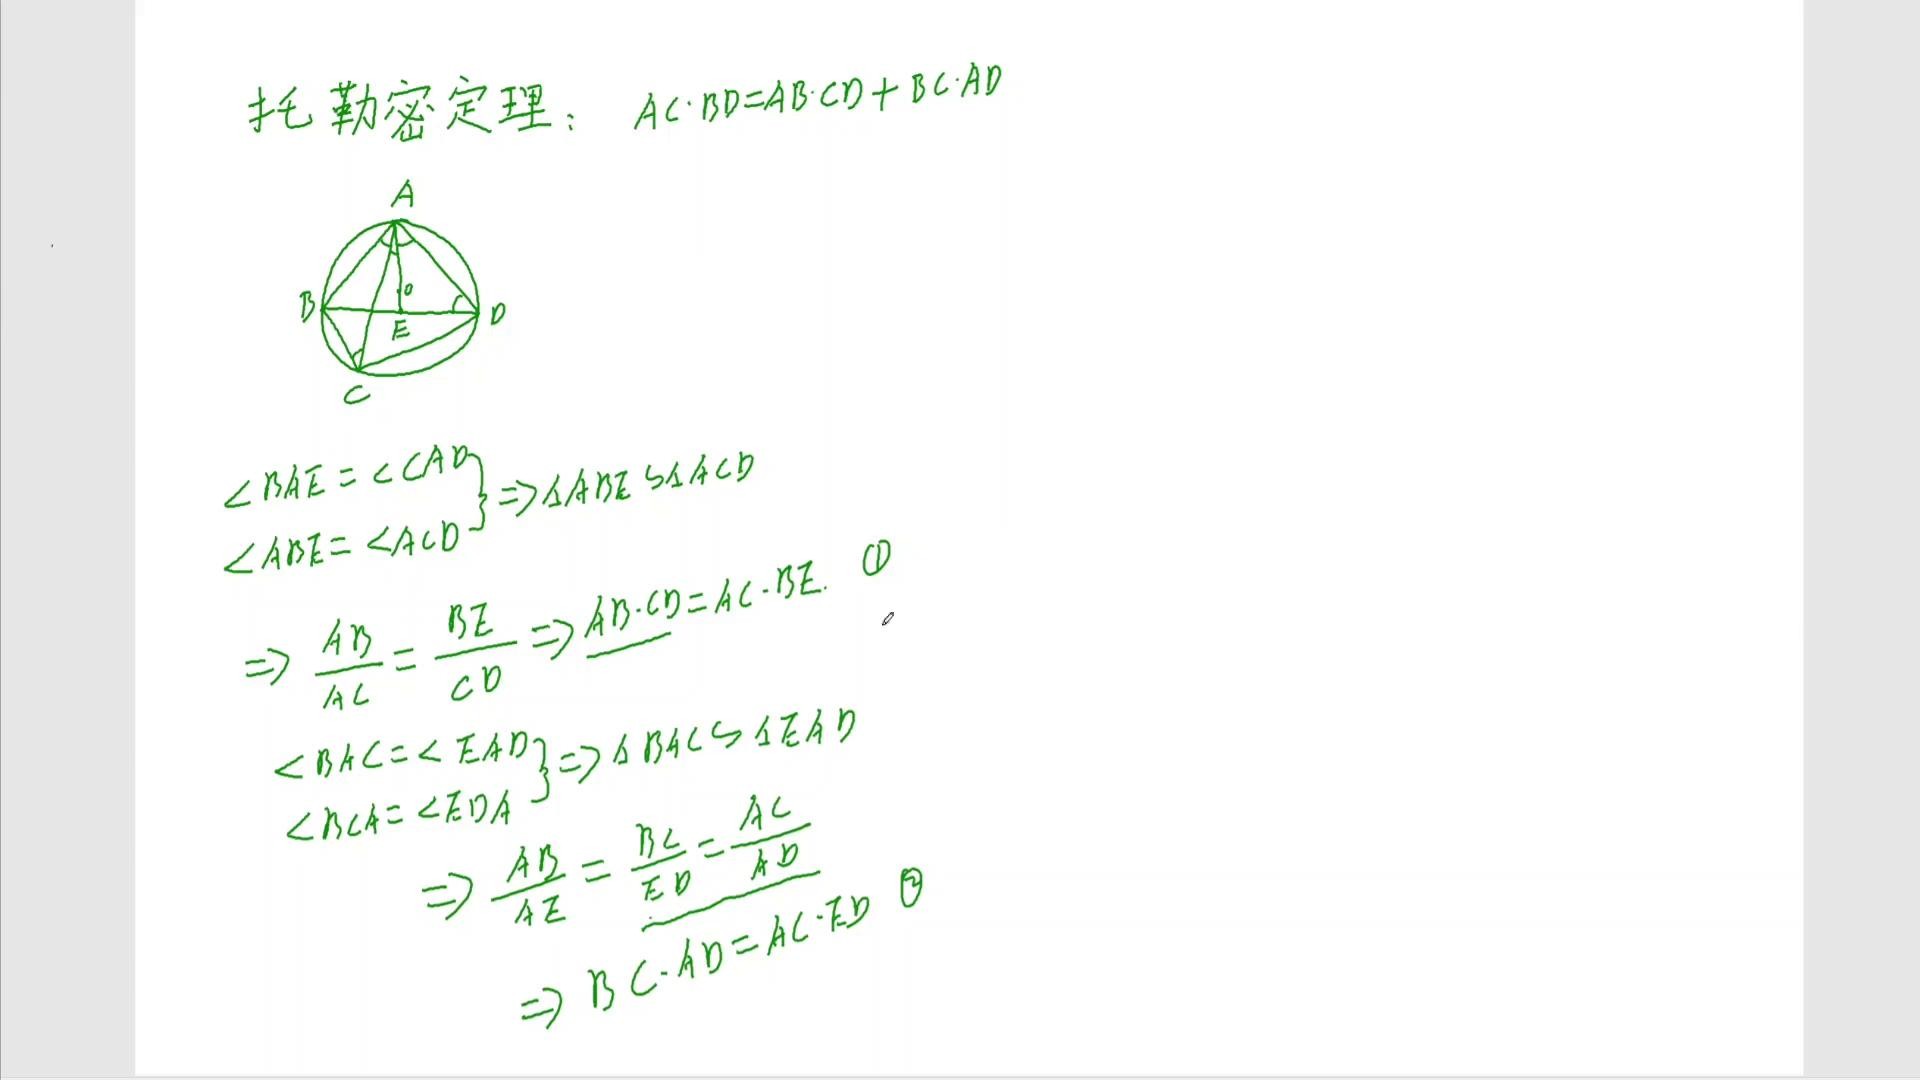 托勒密定理: AC·BD=AB·CD+BC·AD
A
B
O
D
E
C
∠BAE=∠CAD
∠ABE=∠ACD } ⇒ △ABE∽△ACD
⇒ AB/AC = BE/CD ⇒ AB·CD=AC·BE. ①
∠BAC=∠EAD
∠BCA=∠EDA } ⇒ △BAC∽△EAD
⇒ AB/AE = BC/ED = AC/AD
⇒ BC·AD=AC·ED ②